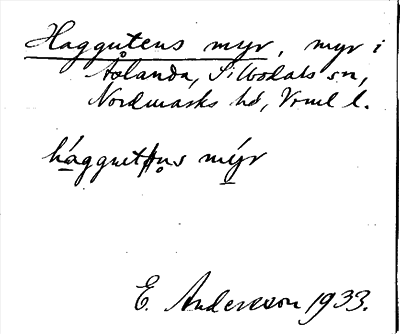 Haggutens myr, myr i
Åslanda, Silbodals sn,
Nordmarks hd, Vrml l.
hágguntns mýr
E. Andersson 1933.